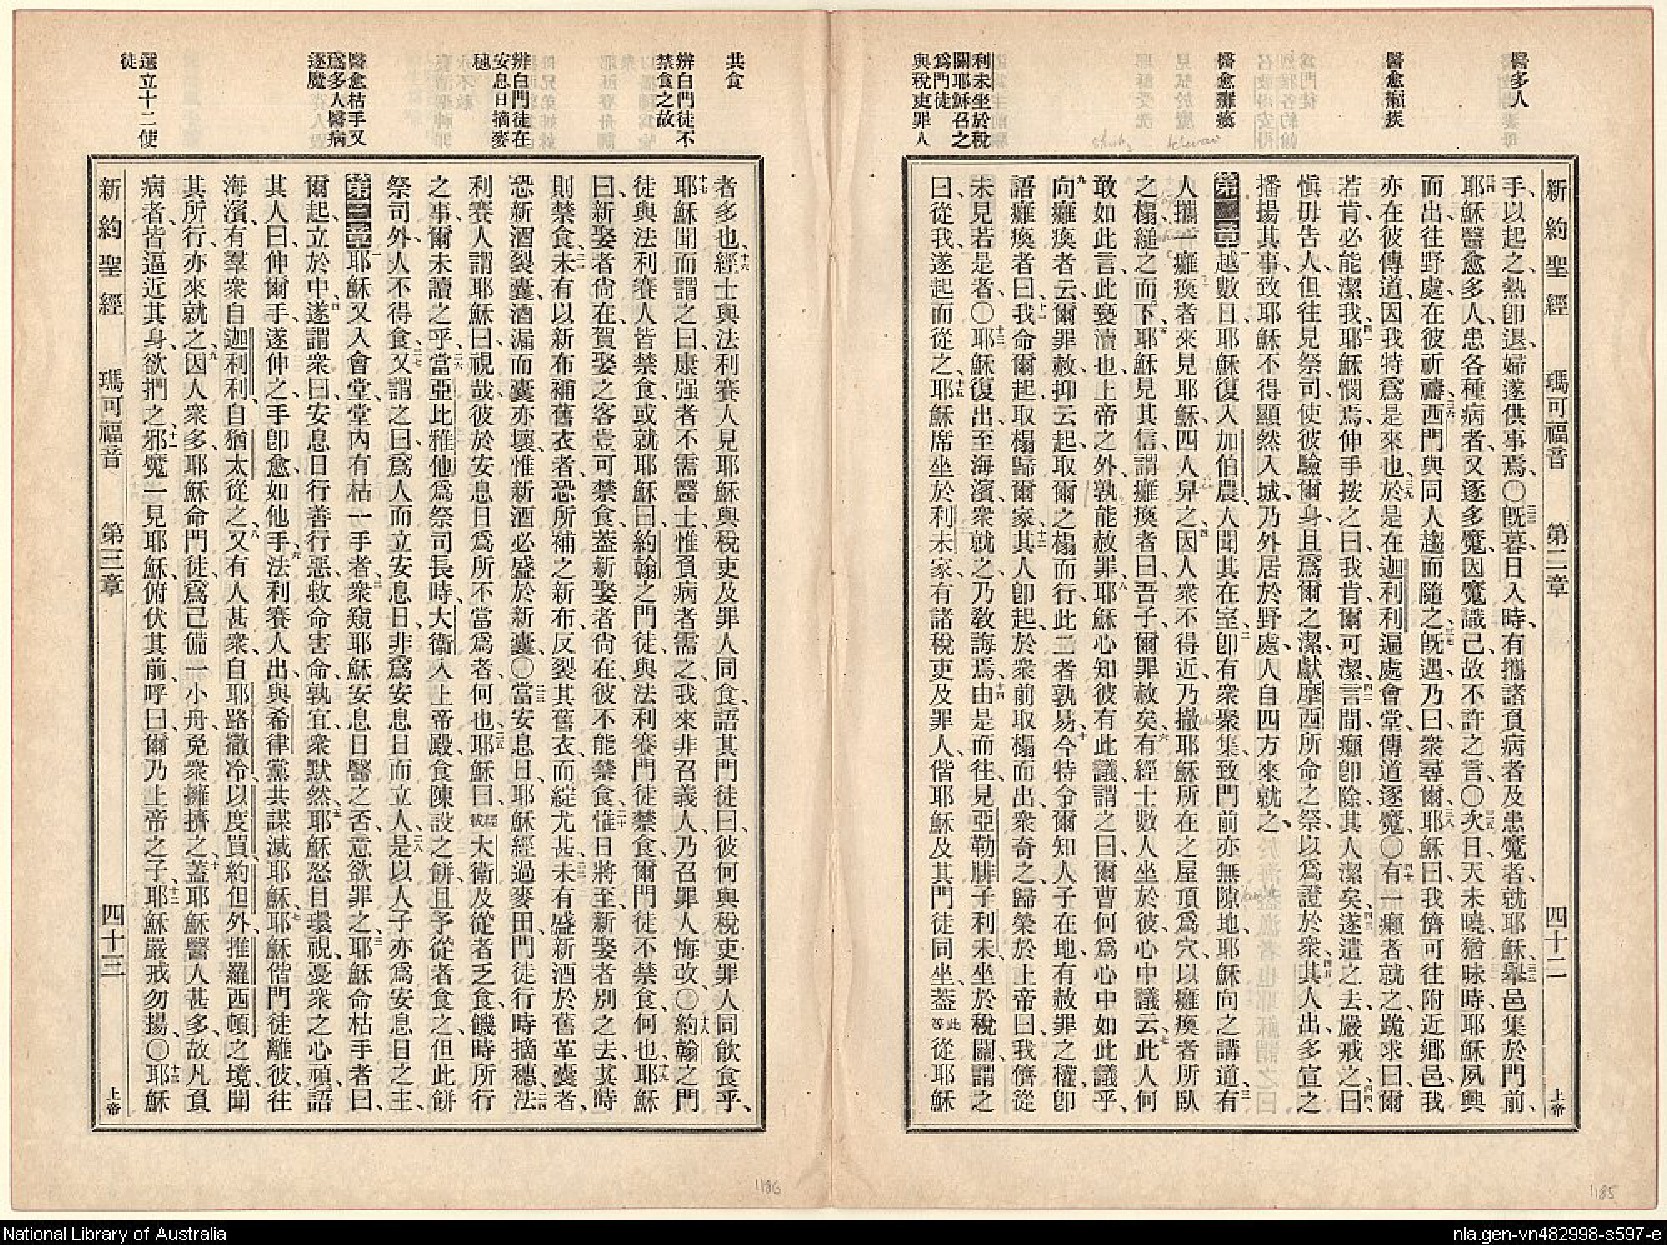 醫多人
醫愈癩疾
醫愈癱瘓
利未坐於稅
關耶穌召之
爲門徒
與稅吏罪人
新約聖經 瑪可福音 第二章 四十二 上帝
手、以起之、熱卽退、婦遂供事焉、〇旣暮日入時、有攜諸負病者及患魔者、就耶穌、舉邑集於門前、
耶穌醫愈多人患各種病者、又逐多魔、因魔識己、故不許之言、〇次日天未曉、猶昧時、耶穌夙興
而出、往野處、在彼祈禱、西門與同人趨而隨之、旣遇、乃曰、衆尋爾、耶穌曰、我儕可往附近鄉邑、我
亦在彼傳道、因我特爲是來也、於是在迦利利遍處會堂傳道逐魔、〇有一癩者就之、跪求曰、爾
若肯、必能潔我、耶穌憫焉、伸手按之曰、我肯、爾可潔、言間癩卽除、其人潔矣、遂遣之去、嚴戒之曰、
愼毋告人、但往見祭司、使彼驗爾身、且爲爾之潔、獻摩西所命之祭、以爲證於衆、其人出、多宣之、
播揚其事、致耶穌不得顯然入城、乃外居於野處、人自四方來就之、
第二章 越數日、耶穌復入加伯農、人聞其在室、卽有衆聚集、致門前亦無隙地、耶穌向之講道、有
人攜一癱瘓者來見耶穌、四人舁之、因人衆不得近、乃撤耶穌所在之屋頂爲穴、以癱瘓者所臥
之榻縋之而下、耶穌見其信、謂癱瘓者曰、吾子、爾罪赦矣、有經士數人坐於彼、心中議云、此人何
敢如此言、此褻瀆也、上帝之外、孰能赦罪、耶穌心知彼有此議、謂之曰、爾曹何爲心中如此議乎、
向癱瘓者云爾罪赦、抑云起取爾之榻而行、此二者孰易、今特令爾知人子在地有赦罪之權、卽
語癱瘓者曰、我命爾起、取榻歸爾家、其人卽起、於衆前取榻而出、衆奇之、歸榮於上帝曰、我儕從
未見若是者、〇耶穌復出至海濱、衆就之、乃敎誨焉、由是而往、見亞勒腓子利未坐於稅關、謂之
曰、從我、遂起而從之、耶穌席坐於利未家、有諸稅吏及罪人、偕耶穌及其門徒同坐、蓋此等從耶穌
共食
辨白門徒不
禁食之故
辨白門徒在
安息日摘麥
穗
醫愈枯手又
爲多人醫病
逐魔
選立十二使
徒
者多也、經士與法利賽人見耶穌與稅吏及罪人同食、語其門徒曰、彼何與稅吏罪人同飮食乎、
耶穌聞而謂之曰、康强者不需醫士、惟負病者需之、我來非召義人、乃召罪人悔改、〇約翰之門
徒與法利賽人皆禁食、或就耶穌曰、約翰之門徒、與法利賽門徒禁食、爾門徒不禁食、何也、耶穌
曰、新娶者尙在、賀娶之客豈可禁食、蓋新娶者尙在、彼不能禁食、惟日將至、新娶者別之去、其時
則禁食、未有以新布補舊衣者、恐所補之新布、反裂其舊衣、而綻尤甚、未有盛新酒於舊革囊者、
恐新酒裂囊、酒漏而囊亦壞、惟新酒必盛於新囊、〇當安息日、耶穌經過麥田、門徒行時摘穗、法
利賽人謂耶穌曰、視哉、彼於安息日爲所不當爲者、何也、耶穌曰、經載大衛及從者乏食饑時所行
之事、爾未讀之乎、當亞比雅他爲祭司長時、大衛入上帝殿、食陳設之餠、且予從者食之、但此餠
祭司外、人不得食、又謂之曰、爲人而立安息日、非爲安息日而立人、是以人子亦爲安息日之主、
第三章 耶穌又入會堂、堂內有枯一手者、衆窺耶穌安息日醫之否、意欲罪之、耶穌命枯手者曰、
爾起立於中、遂謂衆曰、安息日行善行惡、救命害命、孰宜、衆默然、耶穌怒目環視、憂衆之心頑、語
其人曰、伸爾手、遂伸之、手卽愈如他手、法利賽人出、與希律黨共謀滅耶穌、耶穌偕門徒離彼往
海濱、有羣衆自迦利利、自猶太從之、又有人甚衆、自耶路撒冷、以度買、約但外、推羅西頓之境、聞
其所行、亦來就之、因人衆多、耶穌命門徒爲己備一小舟、免衆擁擠之、蓋耶穌醫人甚多、故凡負
病者、皆逼近其身、欲捫之、邪魔一見耶穌、俯伏其前、呼曰、爾乃上帝之子、耶穌嚴戒勿揚、〇耶穌
新約聖經 瑪可福音 第三章 四十三 上帝
1186
1185
National Library of Australia
nla.gen-vn482998-s597-e